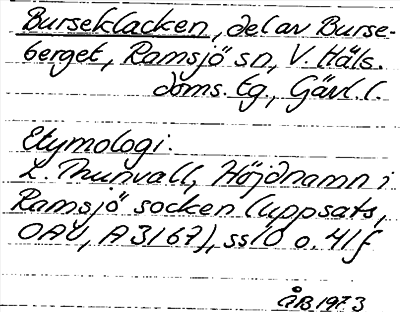 Burseklacken, del av Burse-
berget, Ramsjö sn, V. Häls.
doms. tg., Gävl. l.
Etymologi:
L. Thunvall, Höjdnamn i
Ramsjö socken (uppsats,
OAU, A 3167), ss 10 o. 41 f
ÅB 1973